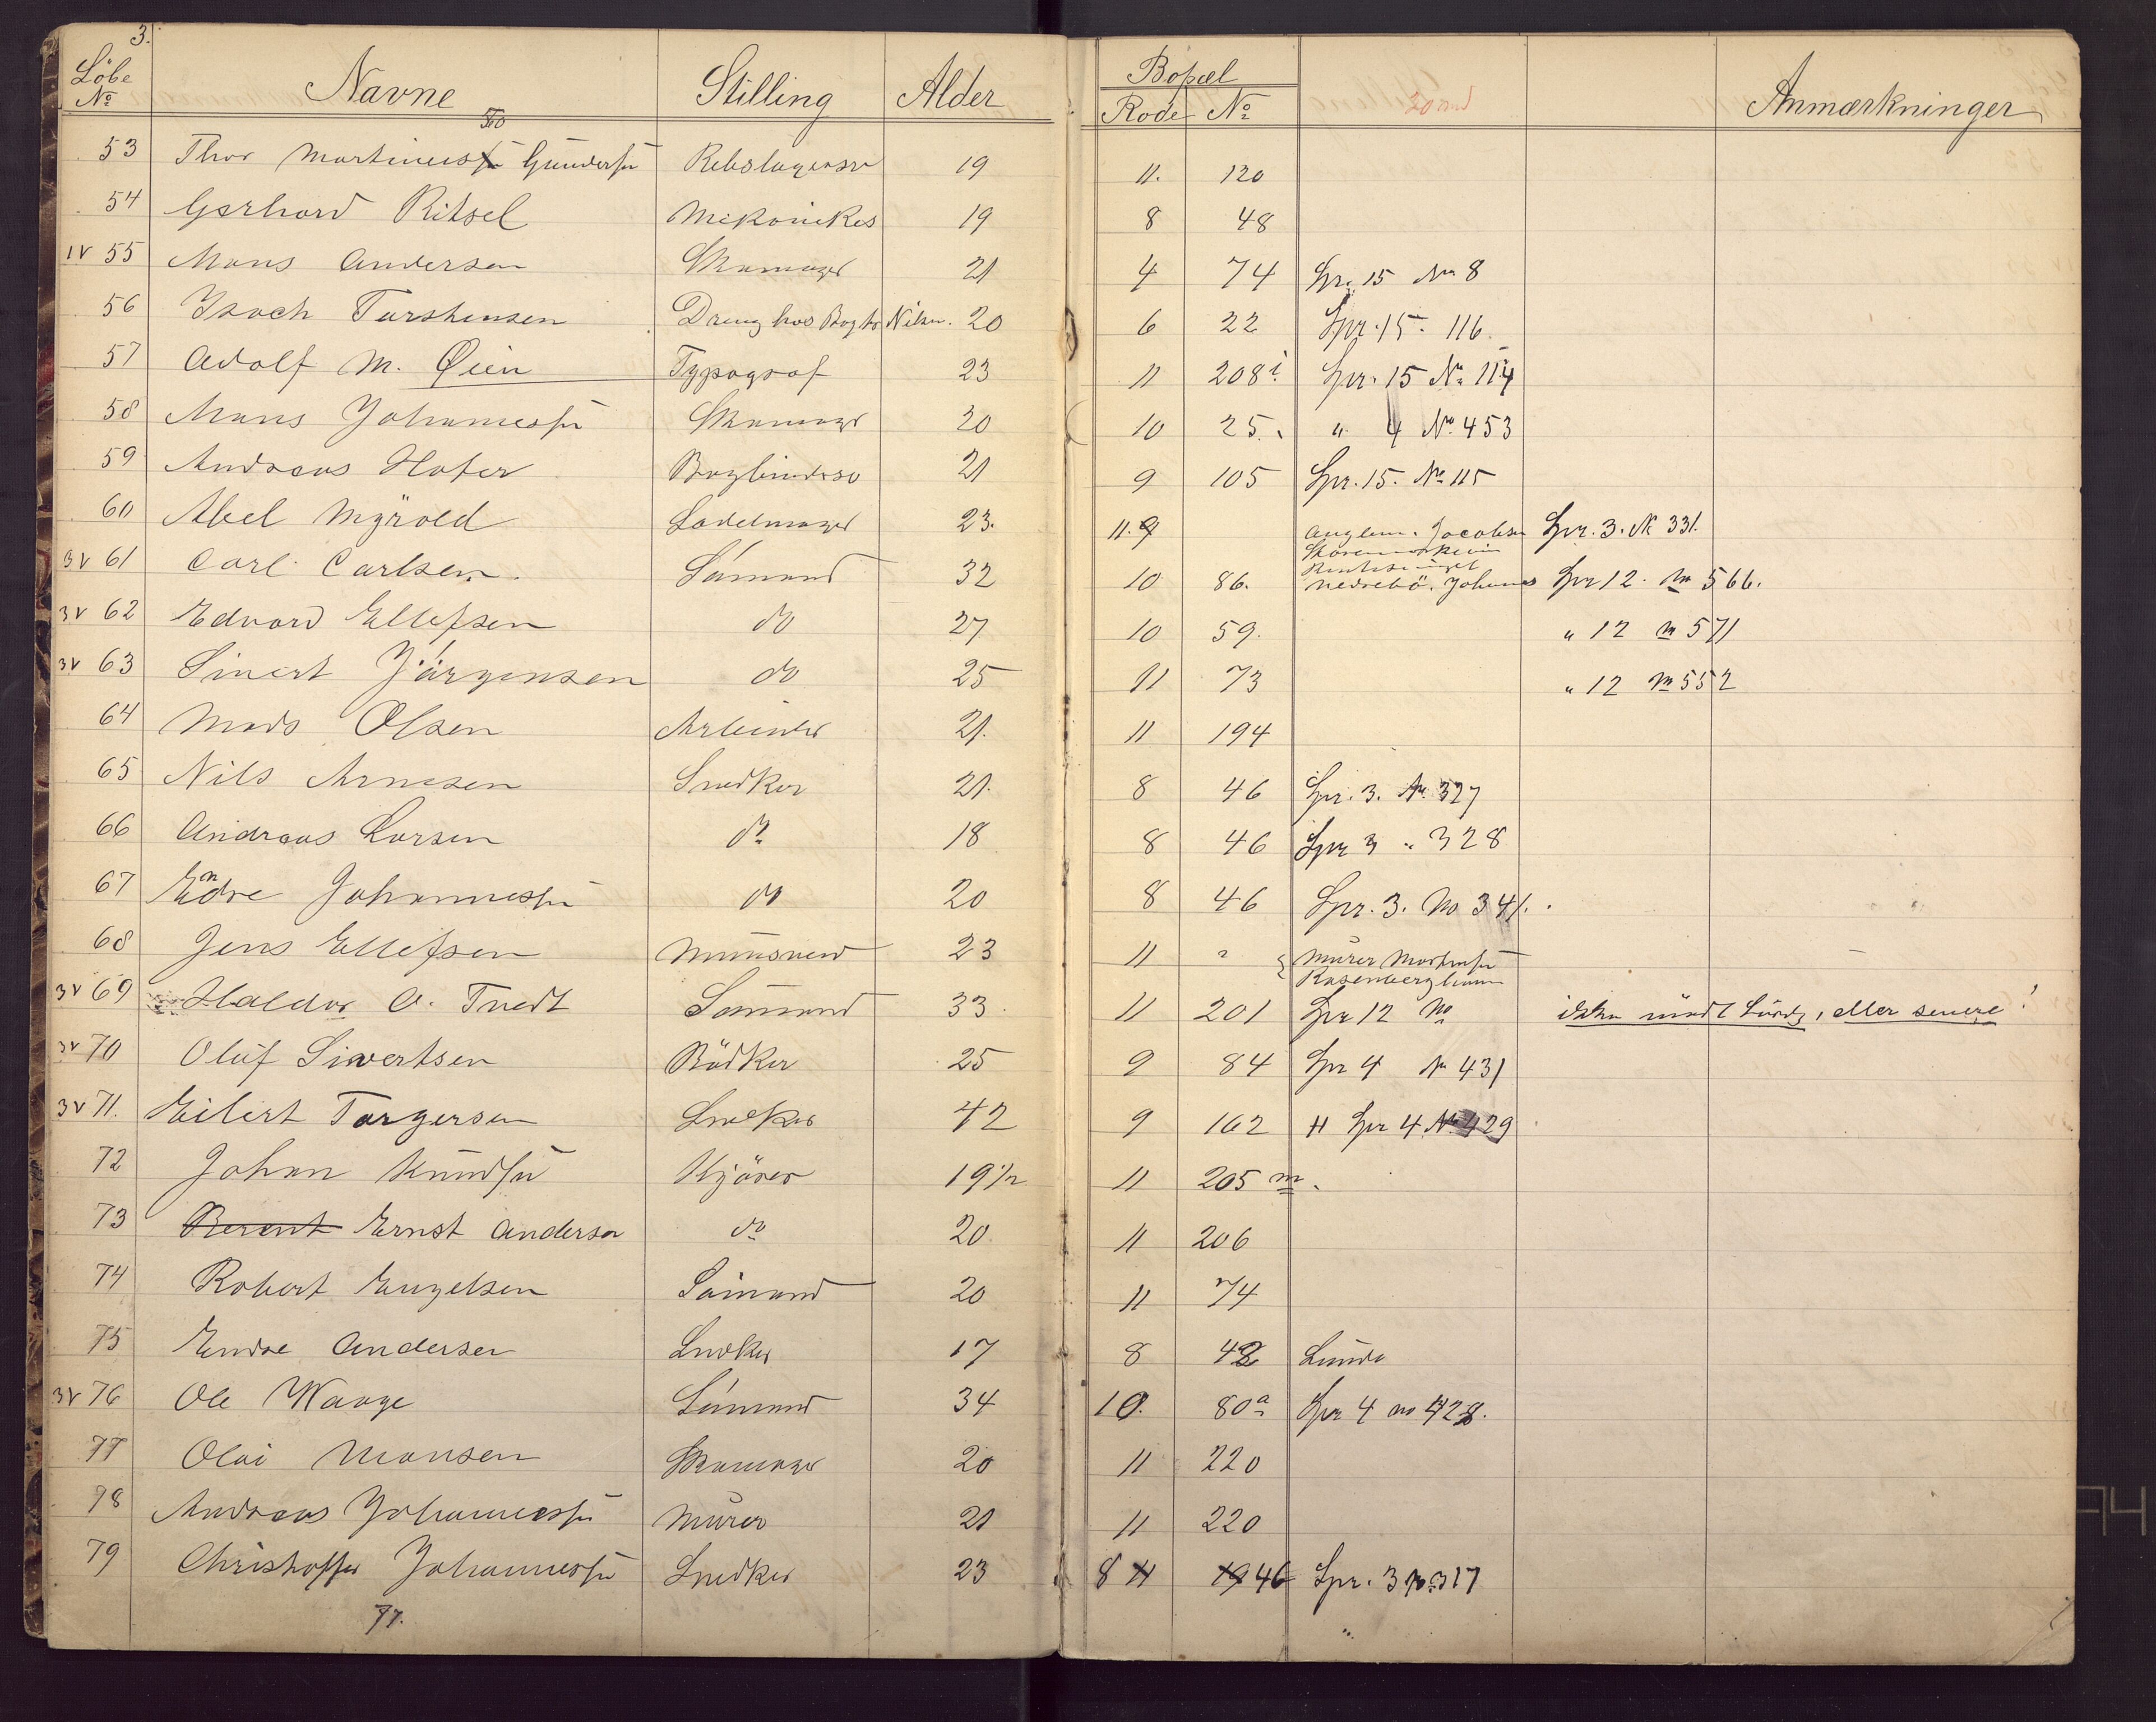 3.
Löbe No Navne Stilling Alder Bopæl Rode No Anmærkninger
53 Thor Martinius Gundersen 19 11. 120
54 Gerhard Ritsel Mekanikes 19 8 48
1V 55 Mons Andersen Skomager 21 4 74 Spr. 15 No 8
56 Isach Torstensen Dreng hos Nilsen. 20 6 22 Spr. 15. 116.
57 Adolf M. Øien Typograf 23 11 208 i Spr. 15 No 114
58 Mons Johannessen Skomager 20 10 25. " 4 No 453
59 Andreas Hofer Bogbinder 21 9 105 Spr. 15. No 115
60 Abel Myrold Sadelmager 23. 11. Jacobsen Spr. 3. No 331.
3V 61 Carl Carlsen. Sömand 32 10 86. Nedrebö. Johannes Spr 12. No 566.
3V 62 Edvard Ellefsen do 27 10 59. " 12 No 571
3V 63 Sivert Jörgensen do 25 11 73 " 12 No 552
64 Mads Olsen Arbeider 21. 11 194
65 Nils Arnesen Snedker 21. 8 46 Spr. 3. No 327
66 Andreas Larsen do 18 8 46 Spr 3 " 328
67 Endre Johannessen do 20 8 46 Spr. 3. No 341.
68 Jens Ellefsen 23 11 " Murer Mortensen
3V 69 Haldor O. Tvedt Sömand 33 11 201 Spr 12 No ikke mödt Lördg, eller senere!
3V 70 Oluf Sivertsen Bödker 25 9 84 Spr 4 No 431
3V 71. Eilert Torgersen Snedker 42 9 162 H Spr 4 No 429
72 Johan Knudsen Kjörer 19 1/2 11 205 m.
73 Berent Ernst Andersen do 20 11 206
74 Robert Engelsen Sömand 20 11 74
75 Endre Andersen Snedker 17 8 48 Lunde
3V 76 Ole Waage Sömand 34 10. 80a Spr 4 no 428.
77 Olai Monsen Skomager 20 11 220
78 Andreas Johannessen Murer 21 11 220
79 Christoffer Johannessen Snedker 23 8 11 19 46 Spr. 3 No 317
77.